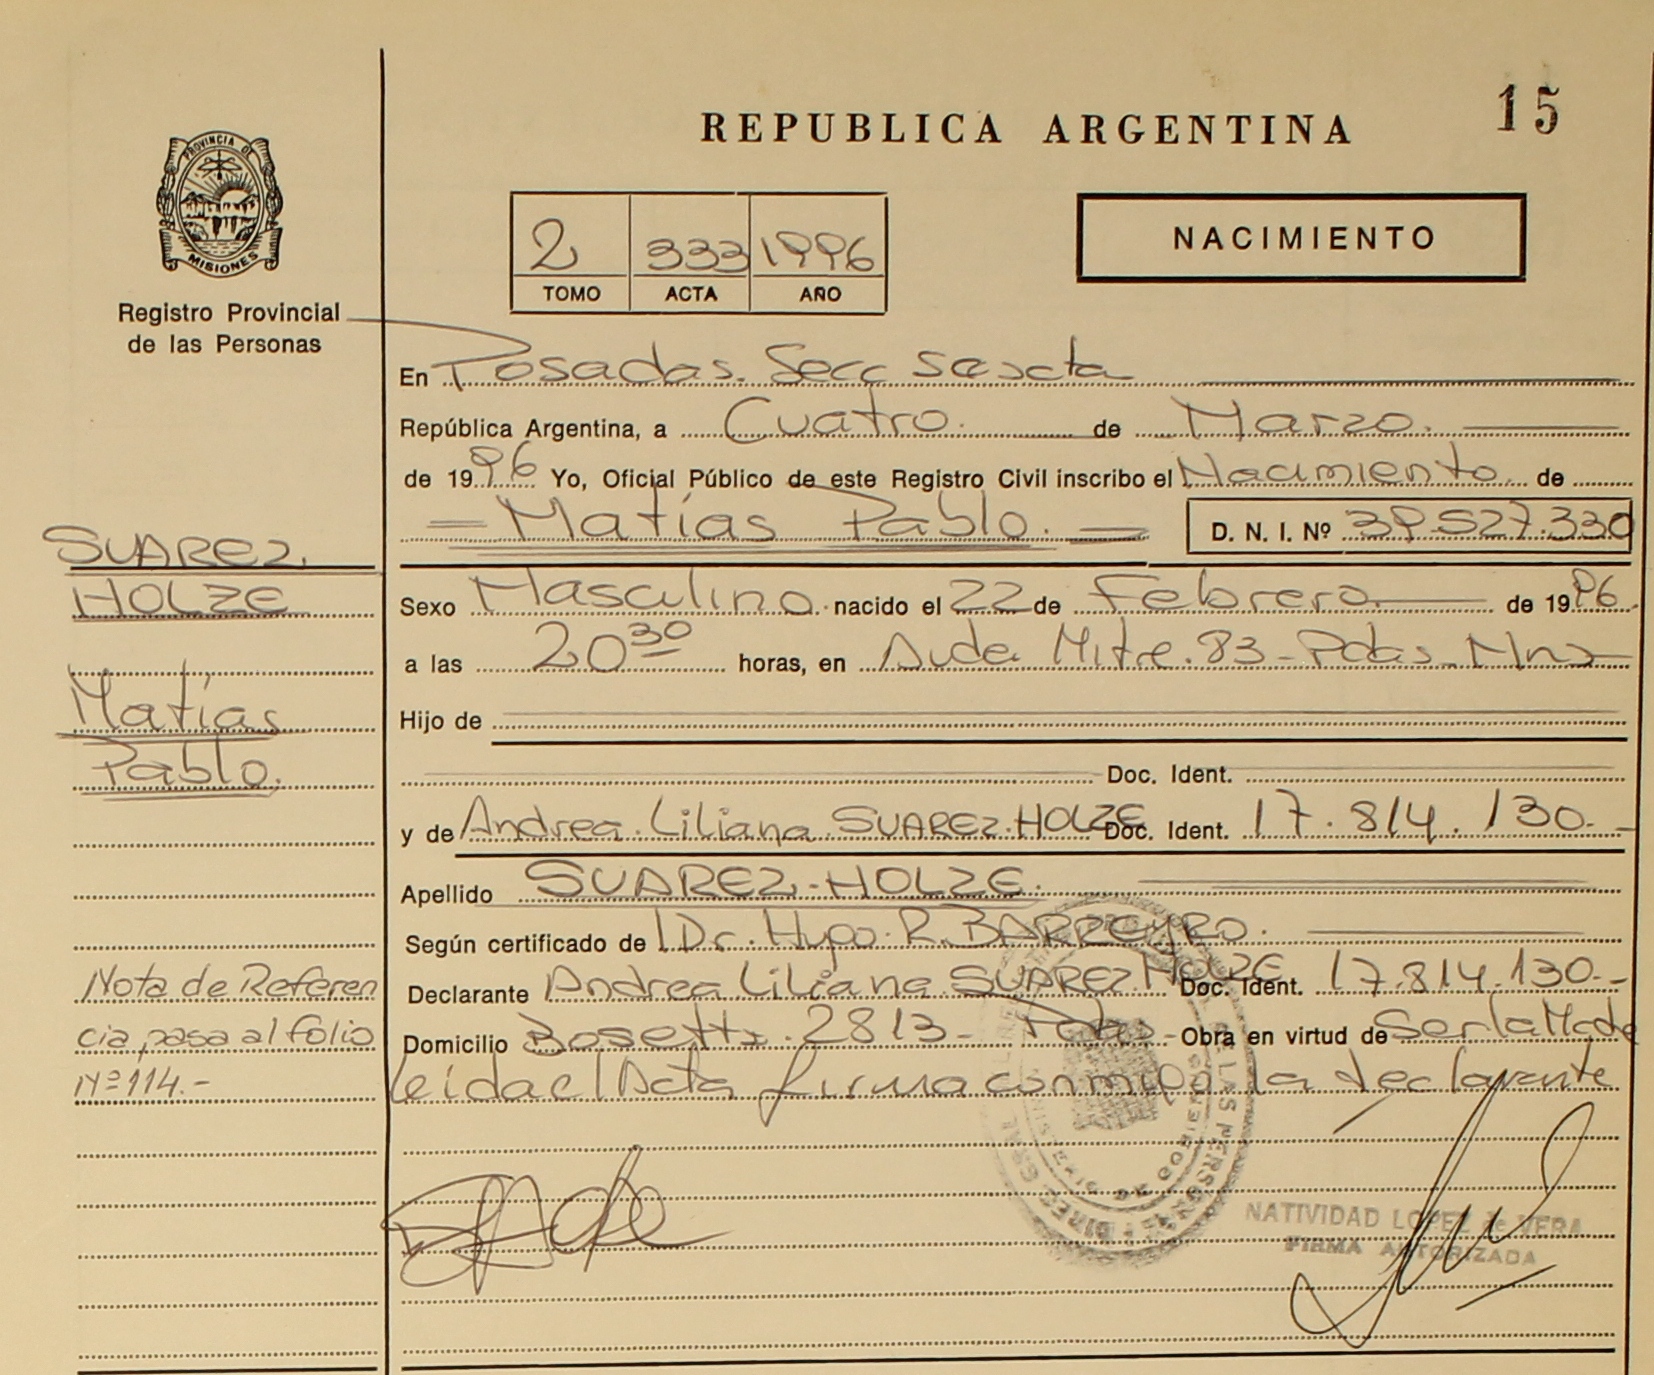 15
REPUBLICA ARGENTINA
PROVINCIA DE
MISIONES
Registro Provincial
de las Personas
2 333 1996
TOMO ACTA AÑO
NACIMIENTO
En Posadas. Secc sexta
República Argentina, a Cuatro. de Marzo.
de 1996 Yo, Oficial Público de este Registro Civil inscribo el Nacimiento de
Matías Pablo. D. N. I. Nº 39.527.330
SUAREZ
HOLZE
Matías
Pablo.
Sexo Masculino. nacido el 22 de Febrero de 1996.
a las 20 30 horas, en Avda Mitre. 83 - Pdas Mns
Hijo de
Doc. Ident.
y de Andrea Liliana SUAREZ HOLZE Doc. Ident. 17.814.130.-
Apellido SUAREZ-HOLZE.
Según certificado de Dr. Hugo R. BARREYRO.
Declarante Andrea Liliana SUAREZ HOLZE Doc. Ident. 17.814.130.-
Domicilio Bosetti. 2813 - Pdas - Obra en virtud de Ser la Madre
leida el Acta firma conmigo la declarante
Nota de Referen
cia pasa al folio
Nº 114.-
NATIVIDAD LOPEZ de VERA
FIRMA AUTORIZADA